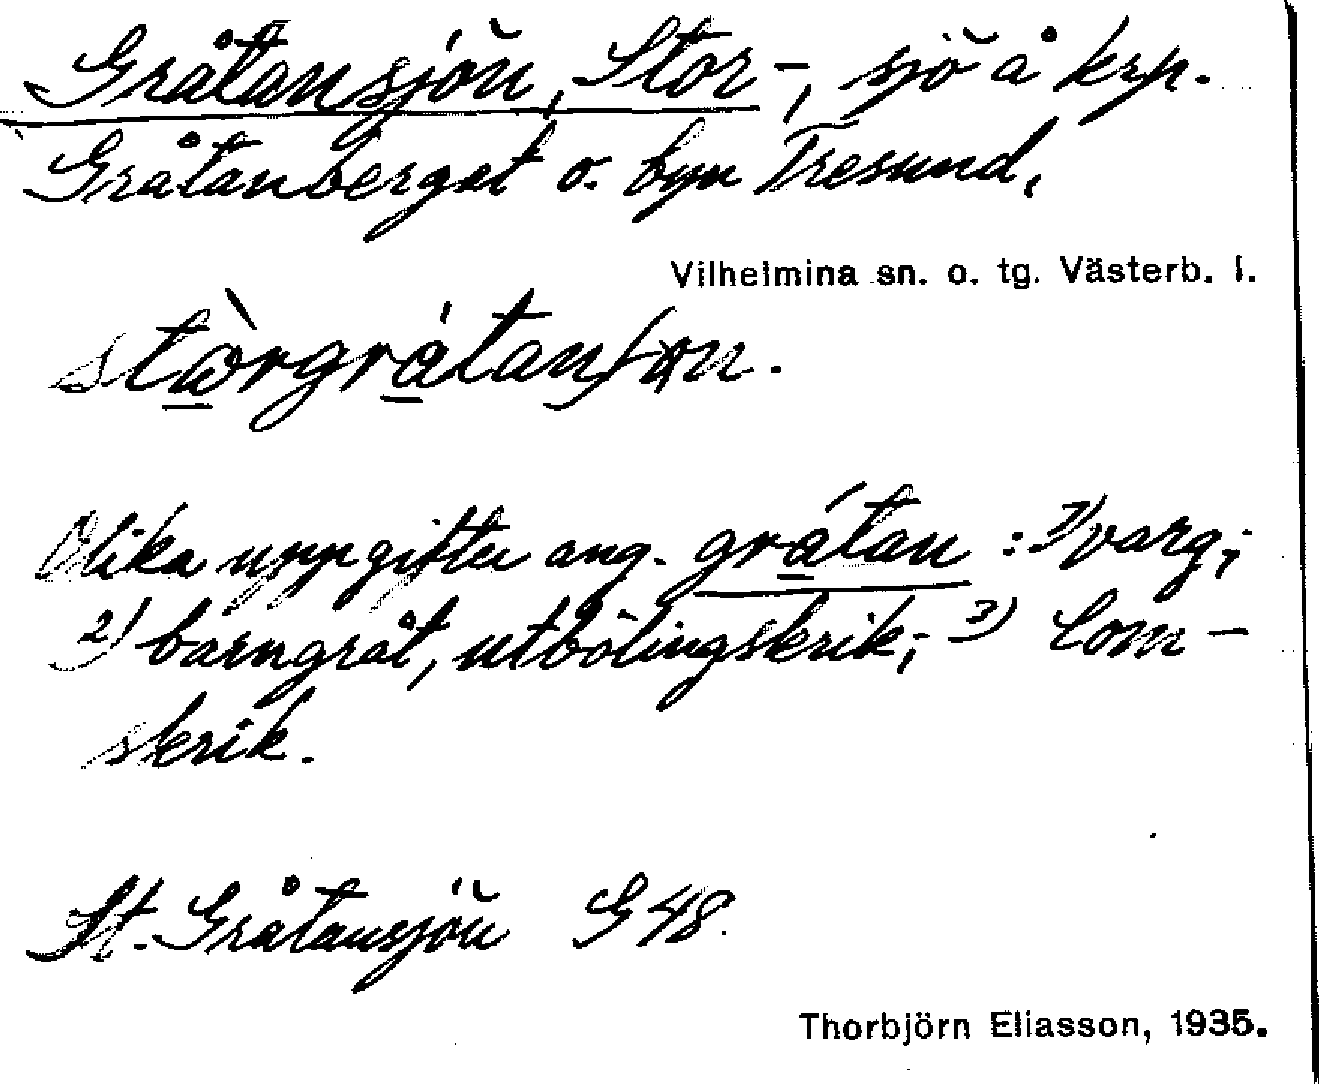 Gråtansjön, Stor-, sjö å krp.
Gråtanberget o. byn Tresund.
Vilhelmina sn. o. tg. Västerb. l.
Olika uppgifter ang. gråtan : 1) varg;
2) barngråt, utbölingskrik; 3) Lom-
skrik.
St. Gråtansjön G 48.
Thorbjörn Eliasson, 1935.